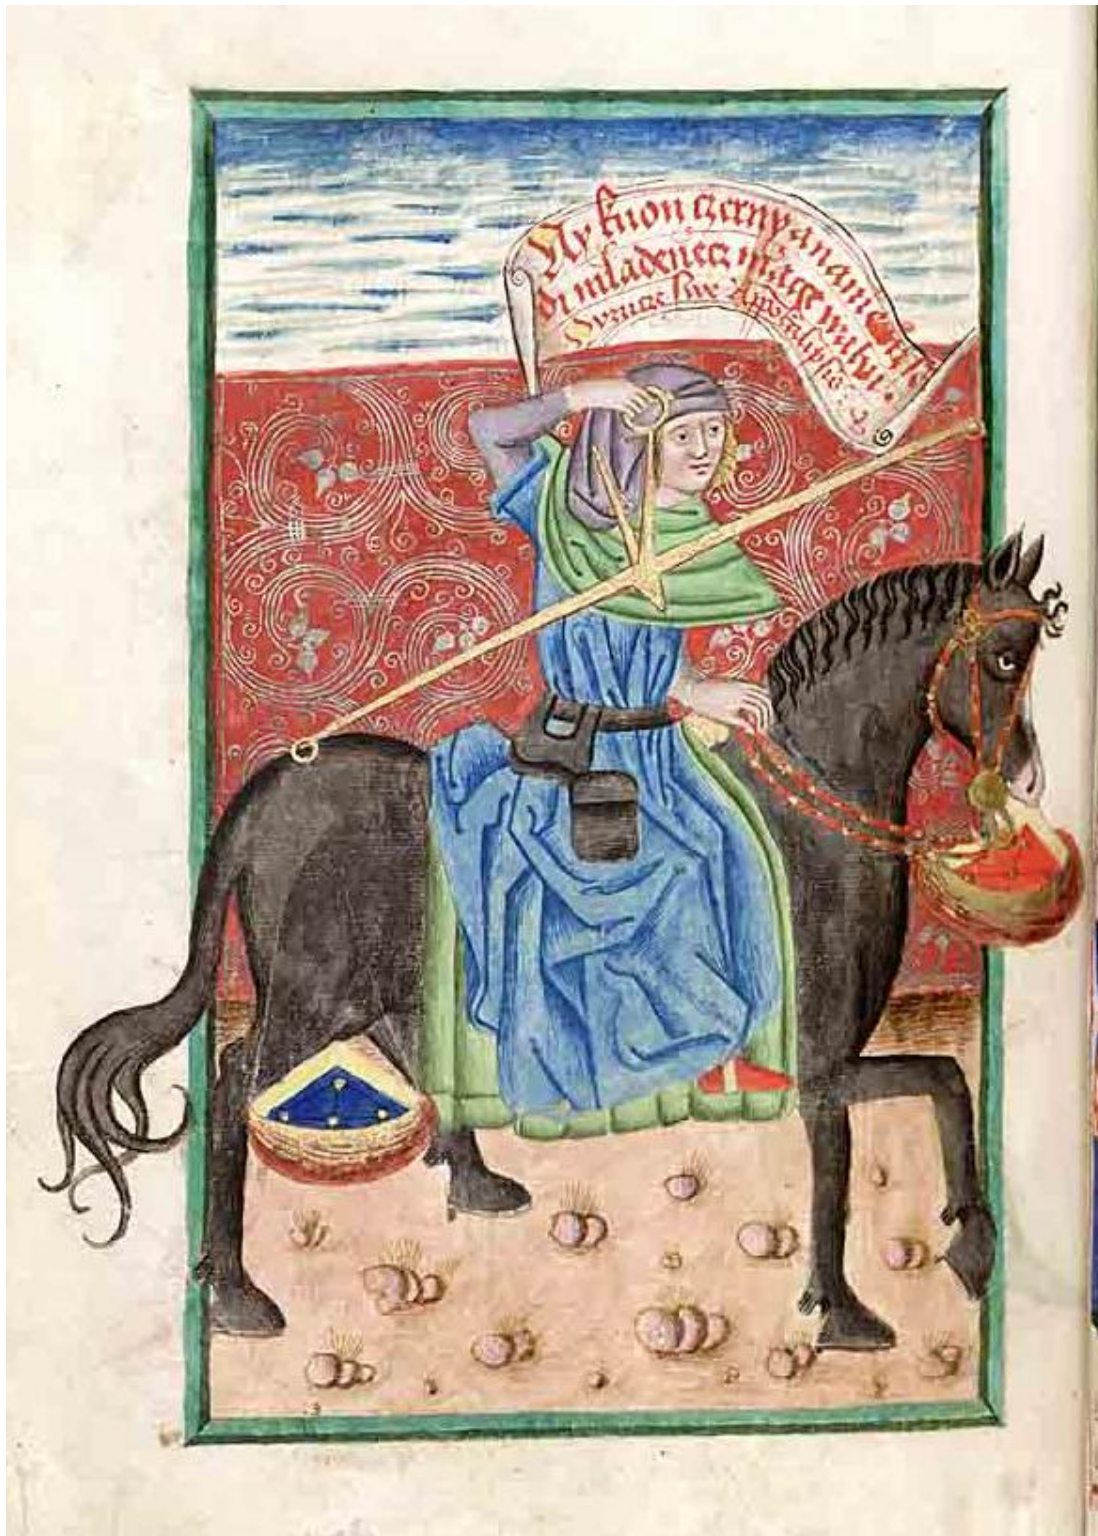 Ay kuon czerny ananiem se
di mladenecz magie wahu
wrucze swe Appocalipsis